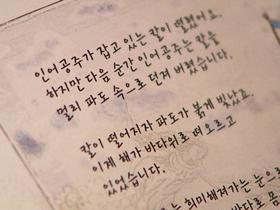 인어공주가 잡고 있는 칼이 떨렸어요.
하지만 다음 순간 인어공주는 칼을
멀리 파도 속으로 던져 버렸습니다.
칼이 떨어지자 파도가 붉게 빛났고,
이제 해가 바다위로 떠오르고
있었습니다.
는 희미해져가는 눈으로
바다로 몸